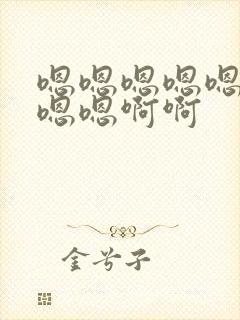 嗯嗯嗯嗯嗯
嗯嗯啊啊
金兮子